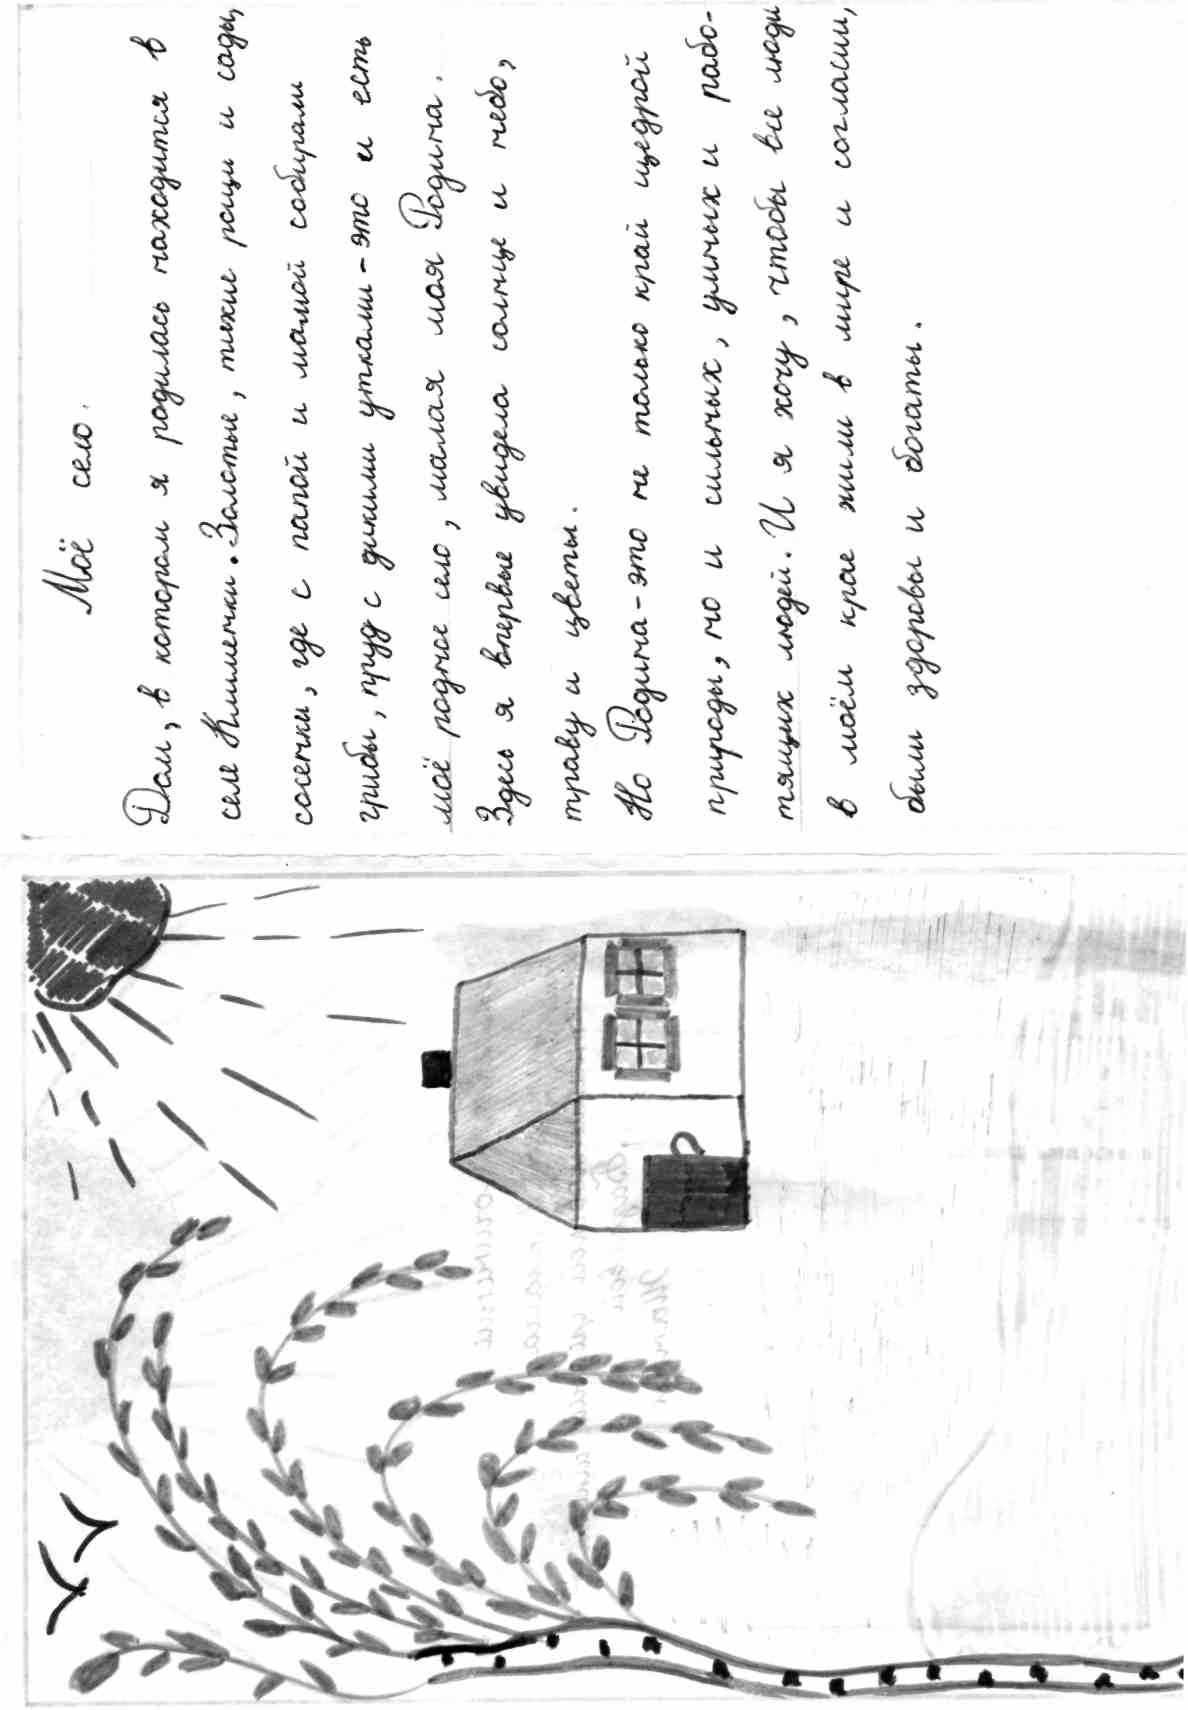 Моё село.
Дом, в котором я родилась находится в
селе Клименки. Золотые, тихие рощи и сады,
сосенки, где с папой и мамой собирали
грибы, пруд с дикими утками - это и есть
моё родное село, малая моя Родина.
Здесь я впервые увидела солнце и небо,
траву и цветы.
Но Родина - это не только край щедрой
природы, но и сильных, умных и рабо-
тящих людей. И я хочу, чтобы все люди
в моём крае жили в мире и согласии,
были здоровы и богаты.